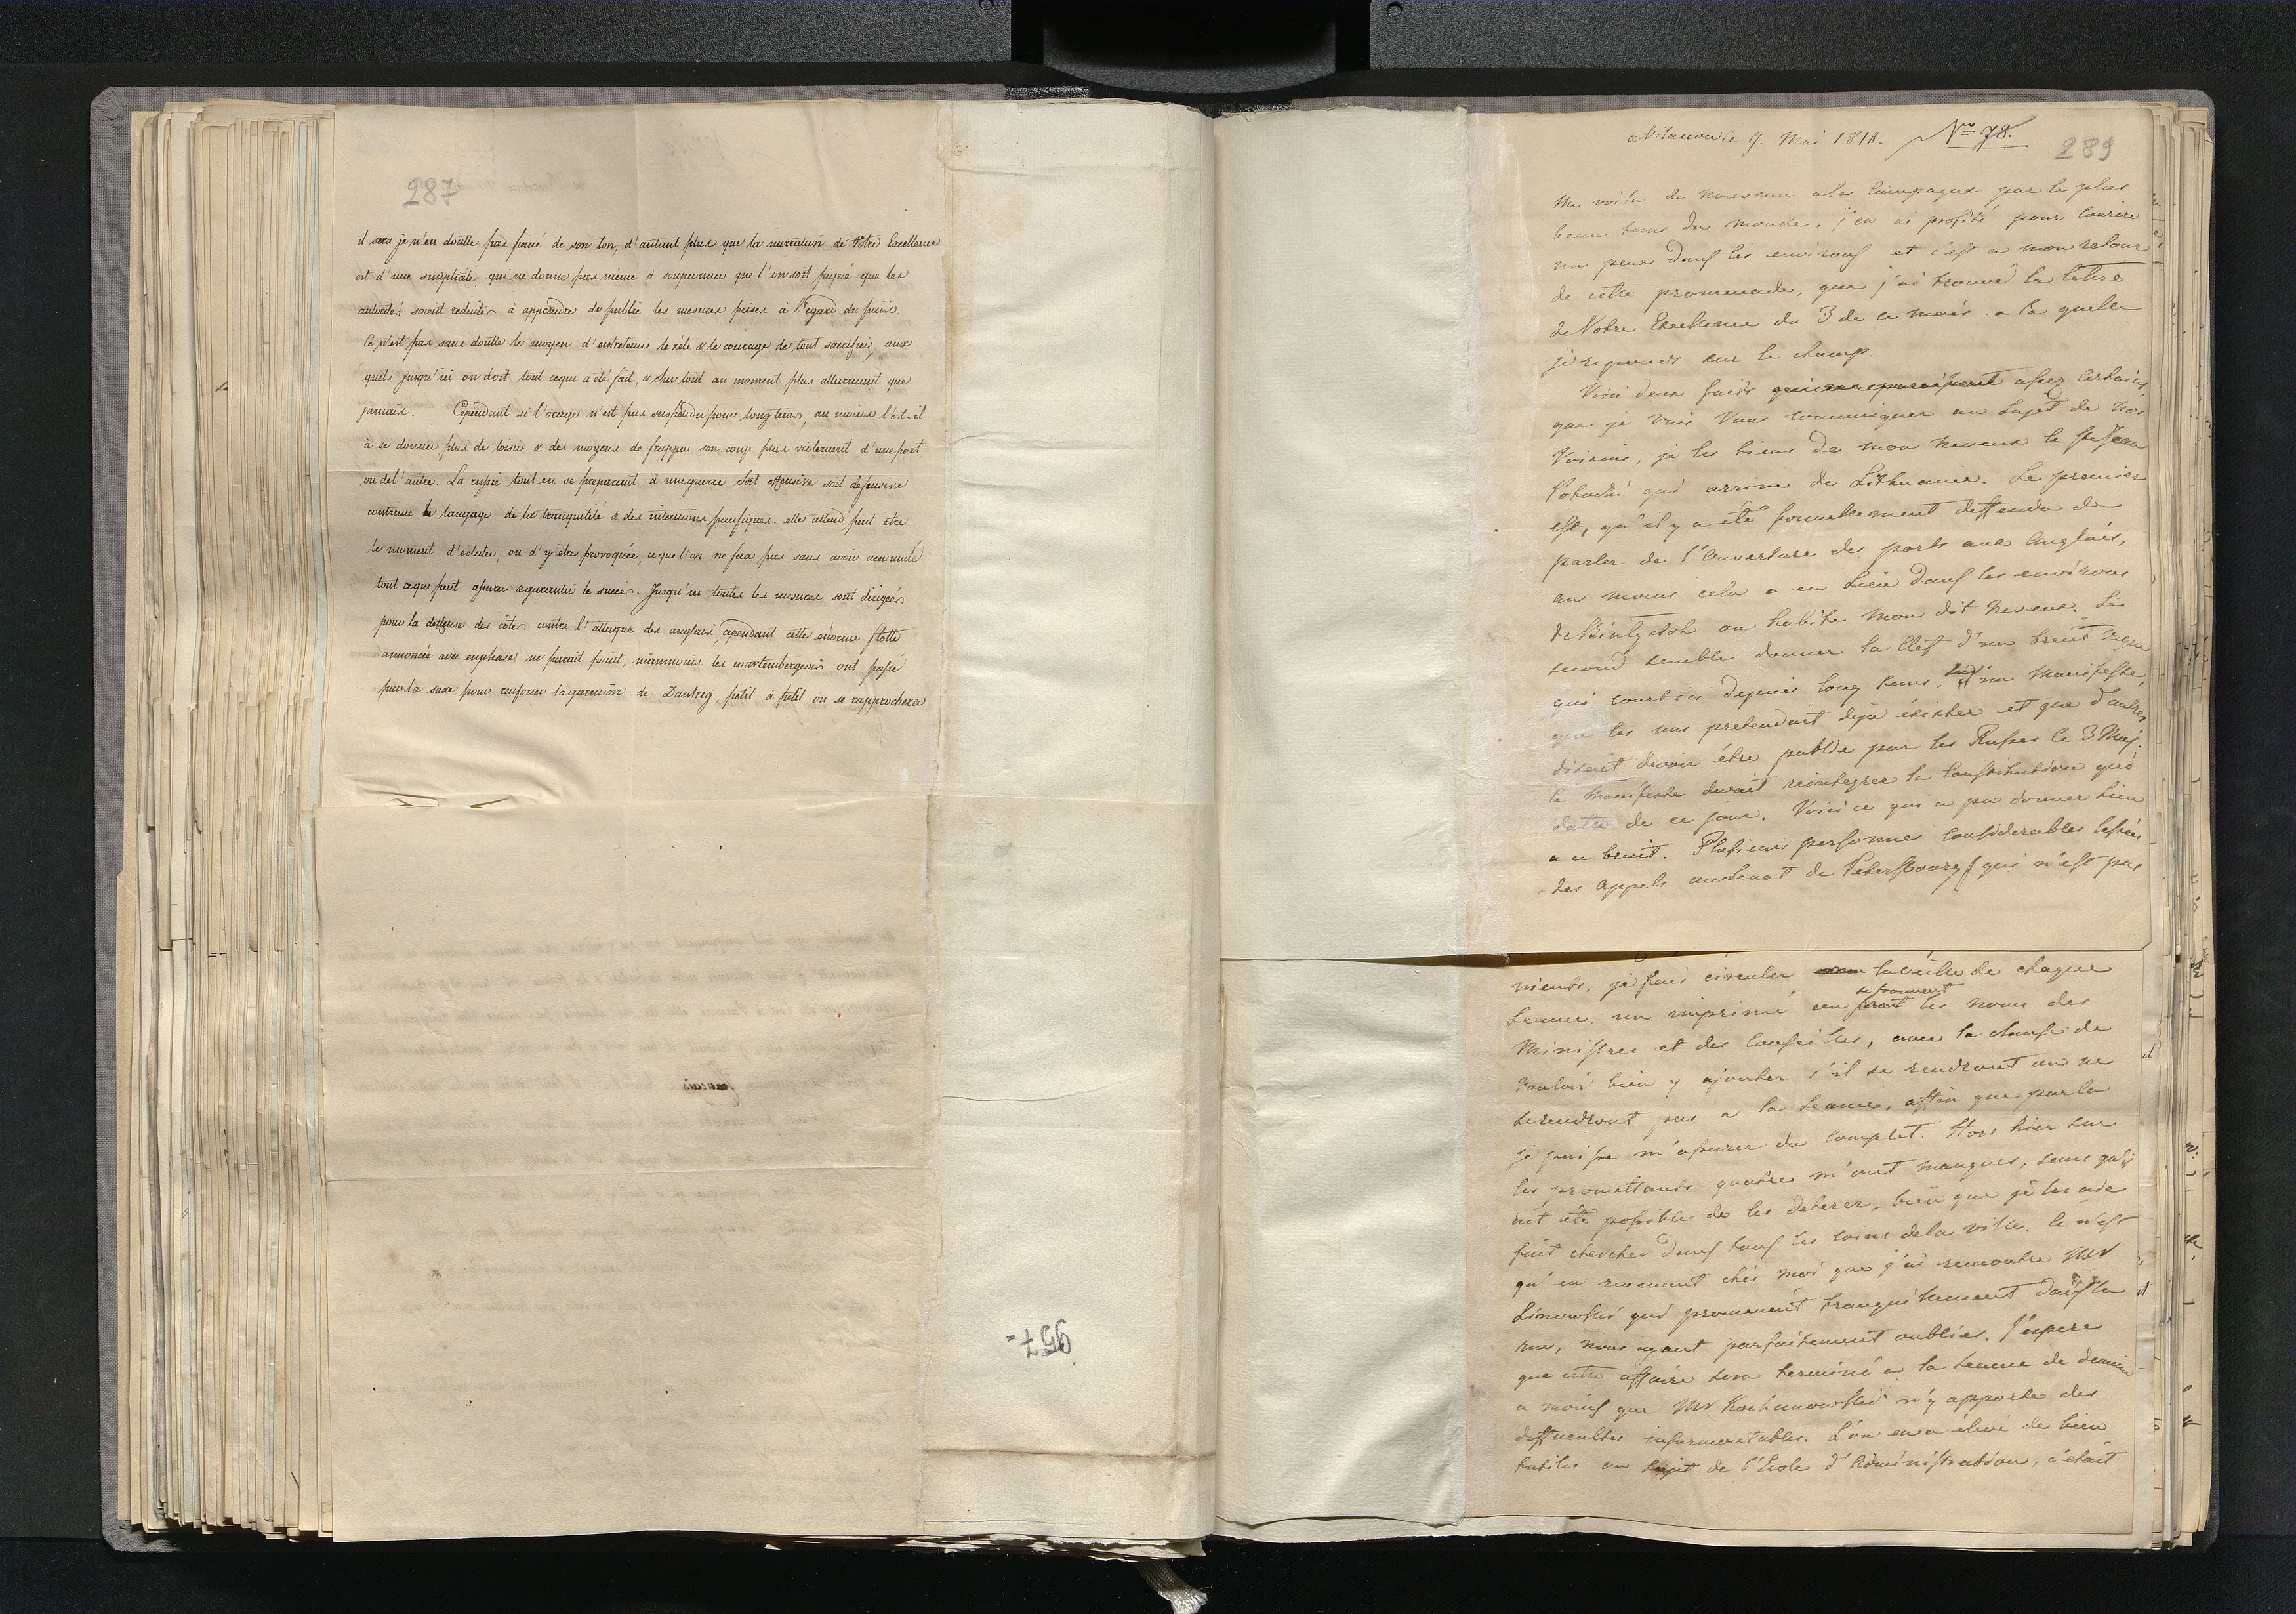 287
il sera je n'en doutte pas peiné de son ton, d'autant plus que la narration de Votre Excellence
est d'une simplicité, qui ne donne pas même à soupconner que l'on soit piqué que les
autorités soient reduites à apprendre du public les mesures prises à l'egard du païs.
Ce n'est pas sans doutte le moyen d'entretenir le zéle & le courage de tout sacrifier, aux
quels jusqu'ici on doit tout cequi a été fait, & sur tout au moment plus allarmant que
jamais. Cependant si l'orage n'est pas suspendu pour long tems, au moins l'est-il
à se donner plus de loisir & des moyens de frapper son coup plus violement d'une part
ou del'autre. La russie tout en se preparant à une guerre soit offensive soit defensive
continue le langage de la tranquilité & des intentions pacifiques. elle attend peut etre
le moment d'éclater, ou d'y être provoquée, ceque l'on ne fera pas sans avoir accumulé
tout cequi peut assurer & garantir le succès. Jusqu'ici toutes les mesures sont dirigées
pour la deffense des côtes contre l'attaque des anglais, cependant cette énorme flotte
annoncée avec emphase ne parait point, néanmoins les wurtembergeois ont passé
par la saxe pour renforcer la garnison de Dantzig, petit à petit on se rapprochera
957
a Vilanow le 9. Mai 1811. Nro 78.
289
Me voila de nouveau a la Campagne par le plus
beau tems du monde, j'en ai profité pour courire
un peux dans les environs et c'est a mon retour
de cette promenade, que j'ai trouvé la lettre
de Votre Excellence du 3 de ce mois. a la quelle
je reponds sur le champ.
Voici deux faits assez certains,
que je vais Vous comuniquer au Sujet de nos
Voisins, je les tiens de mon neveux le
Potocki qui arrive de Lithuanie. Le premier
est, qu'il y a été formellement deffendu de
parler de l'ouverture des ports aux Anglais,
au moins cela a eu Lieu dans les environs
de ou habite mon dit neveux. Le
second semble donner la Clef d'un breuit vague
qui court ici depuis long tems, sur un Manifeste,
que les uns pretendait deja éxister et que d'autres
disent devoir être publié par les Russes le 3 Maj.
le Manifeste devait reintegrer la Constitution qui
date de ce jour. Voici ce qui a pu donner Lieu
a ce bruit. Plusieurs personnes considerables
des Appels au Senat de Petersbourg qui n'est pas
nients, je fais circuler la veille de chaque
Seance, un imprimé ou se trouvent les noms des
Ministres et des Conseilles, avec la clause de
vouloir bien y ajouter s'il se rendront ou ne
se rendront pas a la Seance, affin que par la
je puisse m'assurer du complet. Hors hier sur
les promettants quatre m'ont manqués, sans qu'il
ait été possible de les deterer, bien que je les aie
fait chercher dans tous les coins dela ville. Ce n'est
qu'en revenant chés moi que j'ai rencontre Mr
Linowski qui promenait tranquillement dans la
rue, nous ayant parfaitement oublies. J'espere
que cette affaire sera terminé a la Seance de demain
a moins que Mr Kochanowski n'y apporte des
difficultes insurmontables. L'on en a élevé de bien
futiles au sujet de l'Ecole d'Administration, c'était